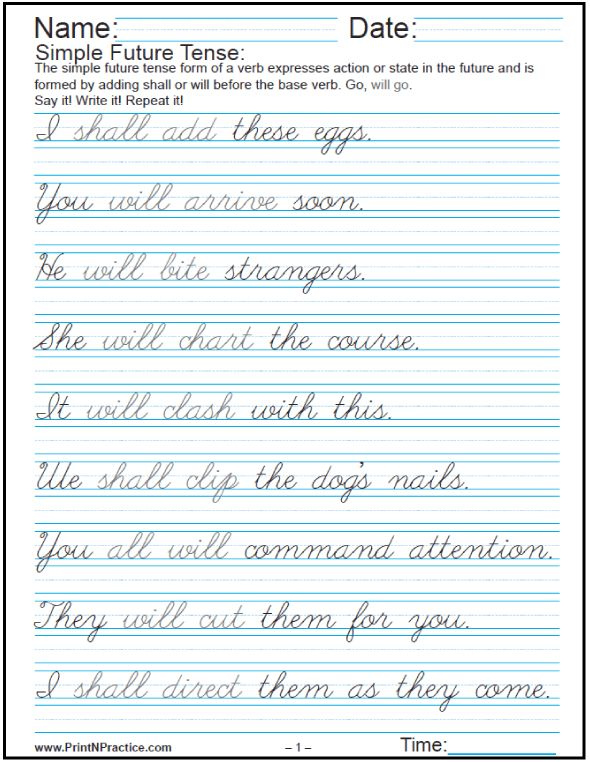 Name: Date:
Simple Future Tense:
The simple future tense form of a verb expresses action or state in the future and is
formed by adding shall or will before the base verb. Go, will go.
Say it! Write it! Repeat it!
I shall add these eggs.
You will arrive soon.
He will bite strangers.
She will chart the course.
It will clash with this.
We shall clip the dog's nails.
You all will command attention.
They will cut them for you.
I shall direct them as they come.
www.PrintNPractice.com – 1 – Time: